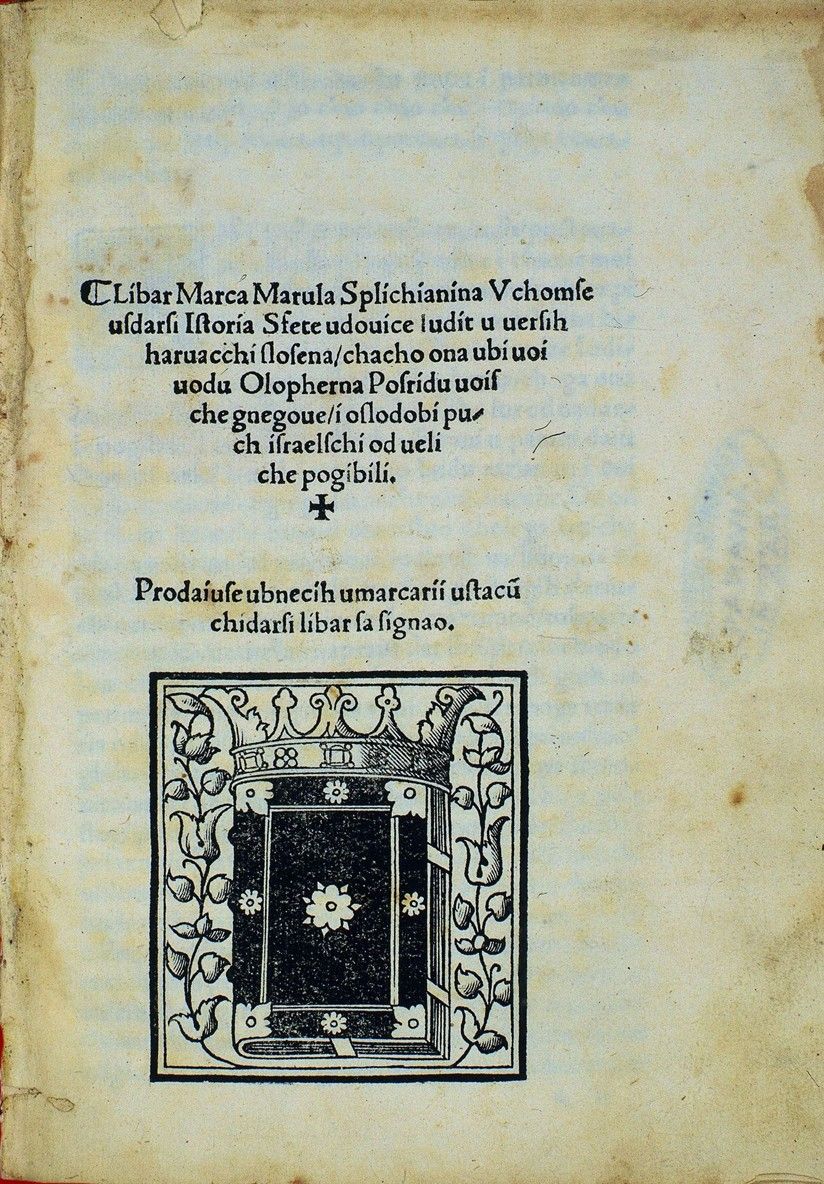 ℂLibar Marca Marula Splichianina Vchomſe
uſdarſi Iſtoria Sfete udouice Iudit u uerſih
haruacchi ſloſena/chacho ona ubi uoi
uodu Olopherna Poſridu uoiſ
che gnegoue/i oſlodobi pu⸗
ch iſraelſchi od ueli
che pogibili.
✠
Prodaiuſe ubnecih umarcarii uſtacū
chidarſi libar ſa ſignao.